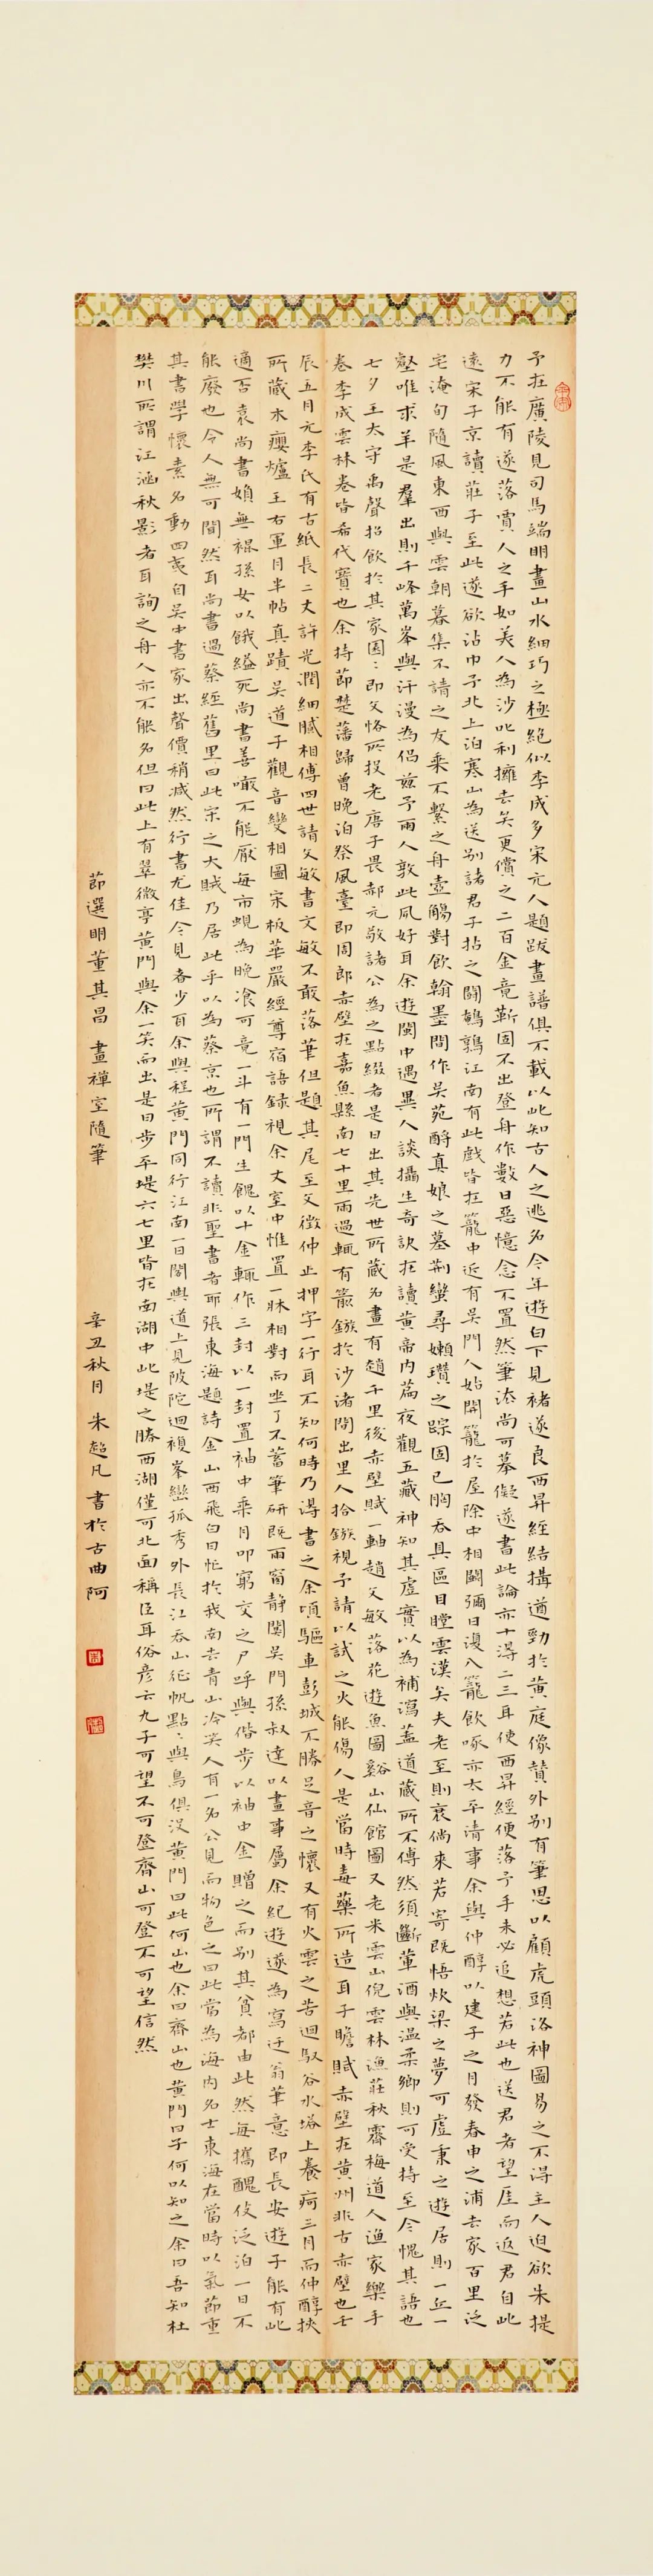 予在廣陵見司馬端明畫山水細巧之極絕似李成多宋元人題跋畫譜俱不載以此知古人之逃名今年遊白下見褚遂良西昇經結搆遒勁於黃庭像贊外別有筆思以顧虎頭洛神圖易之不得主人迫欲朱提
力不能有遂落賈人之手如美人為沙叱利擁去矣更償之二百金竟靳固不出登舟作數日惡憶念不置然筆法尚可摹儗遂書此論亦十得二三耳使西昇經便落予手未必追想若此也送君者望厓而返君自此
遠宋子京讀莊子至此遂欲沾巾予北上泊寒山為送別諸君子拈之鬪鵪鶉江南有此戲皆在籠中近有吳門人始開籠於屋除中相鬪彌日復入籠飲啄亦太平清事余與仲醇以建子之月發春申之浦去家百里泛
宅淹旬隨風東西與雲朝暮集不請之友乘不繫之舟壺觴對飲翰墨間作吳苑酹真娘之墓荊蠻尋嬾瓚之踪固已胸吞具區目瞠雲漢矣夫老至則衰倘來若寄既悟炊粱之夢可虛秉之遊居則一丘一
壑唯求羊是羣出則千峰萬峯與汗漫為侶茲予兩人敦此夙好耳余遊閩中遇異人談攝生奇訣在讀黃帝內篇夜觀五藏神知其虛實以為補瀉蓋道藏所不傳然須斷葷酒與溫柔鄉則可受持至今愧其語也
七夕王太守禹聲招飲於其家園:即文恪所投老唐子畏郝元敬諸公為之點綴者是日出其先世所藏名畫有趙千里後赤壁賦一軸趙文敏落花遊魚圖谿山仙館圖又老米雲山倪雲林漁莊秋霽梅道人漁家樂手
卷李成雲林卷皆希代寶也余持節楚藩歸曾晚泊祭風臺即周郎赤壁在嘉魚縣南七十里雨過輒有箭鏃於沙渚間出里人拾鏃視予請以試之火能傷人是當時毒藥所造耳子瞻賦赤壁在黃州非古赤壁也壬
辰五月元李氏有古紙長二丈許光潤細膩相傳四世請文敏書文敏不敢落筆但題其尾至文徵仲止押字一行耳不知何時乃得書之余頃驅車彭城不勝足音之懷又有火雲之苦迴馭谷水塔上養疴三月而仲醇挾
所藏木癭爐王右軍月半帖真蹟吳道子觀音變相圖宋板華嚴經尊宿語錄視余丈室中惟置一牀相對而坐了不蓄筆研既雨窗靜闃吳門孫叔達以畫事屬余紀遊遂為寫迂翁筆意即長安遊子能有此
適否袁尚書媍無裩孫女以餓縊死尚書善噉不能厭每市蜆為晚飡可竟一斗有一門生餽以十金輒作三封以一封置袖中乘月叩窮交之戶呼與偕步以袖中金贈之而別其貧都由此然每攜醜伎泛泊一日不
能廢也令人無可聞然耳尚書過蔡經舊里曰此宋之大賊乃居此乎以為蔡京也所謂不讀非聖書者耶張東海題詩金山西飛白日忙於我南去青山冷笑人有一名公見而物色之曰此當為海內名士東海在當時以氣節重
其書學懷素名動四夷自吳中書家出聲價稍減然行書尤佳今見者少耳余與程黃門同行江南一日閣輿道上見陂陀迴複峯巒孤秀外長江吞山征帆點:與鳥俱沒黃門曰此何山也余曰齊山也黃門曰子何以知之余曰吾知杜
樊川所謂江涵秋影者耳詢之舟人亦不能名但曰此上有翠微亭黃門與余一笑而出是日步平堤六七里皆在南湖中此堤之勝西湖僅可北面稱臣耳俗彥云九子可望不可登齊山可登不可望信然
節選明董其昌畫禪室隨筆 辛丑秋月朱超凡書於古曲阿